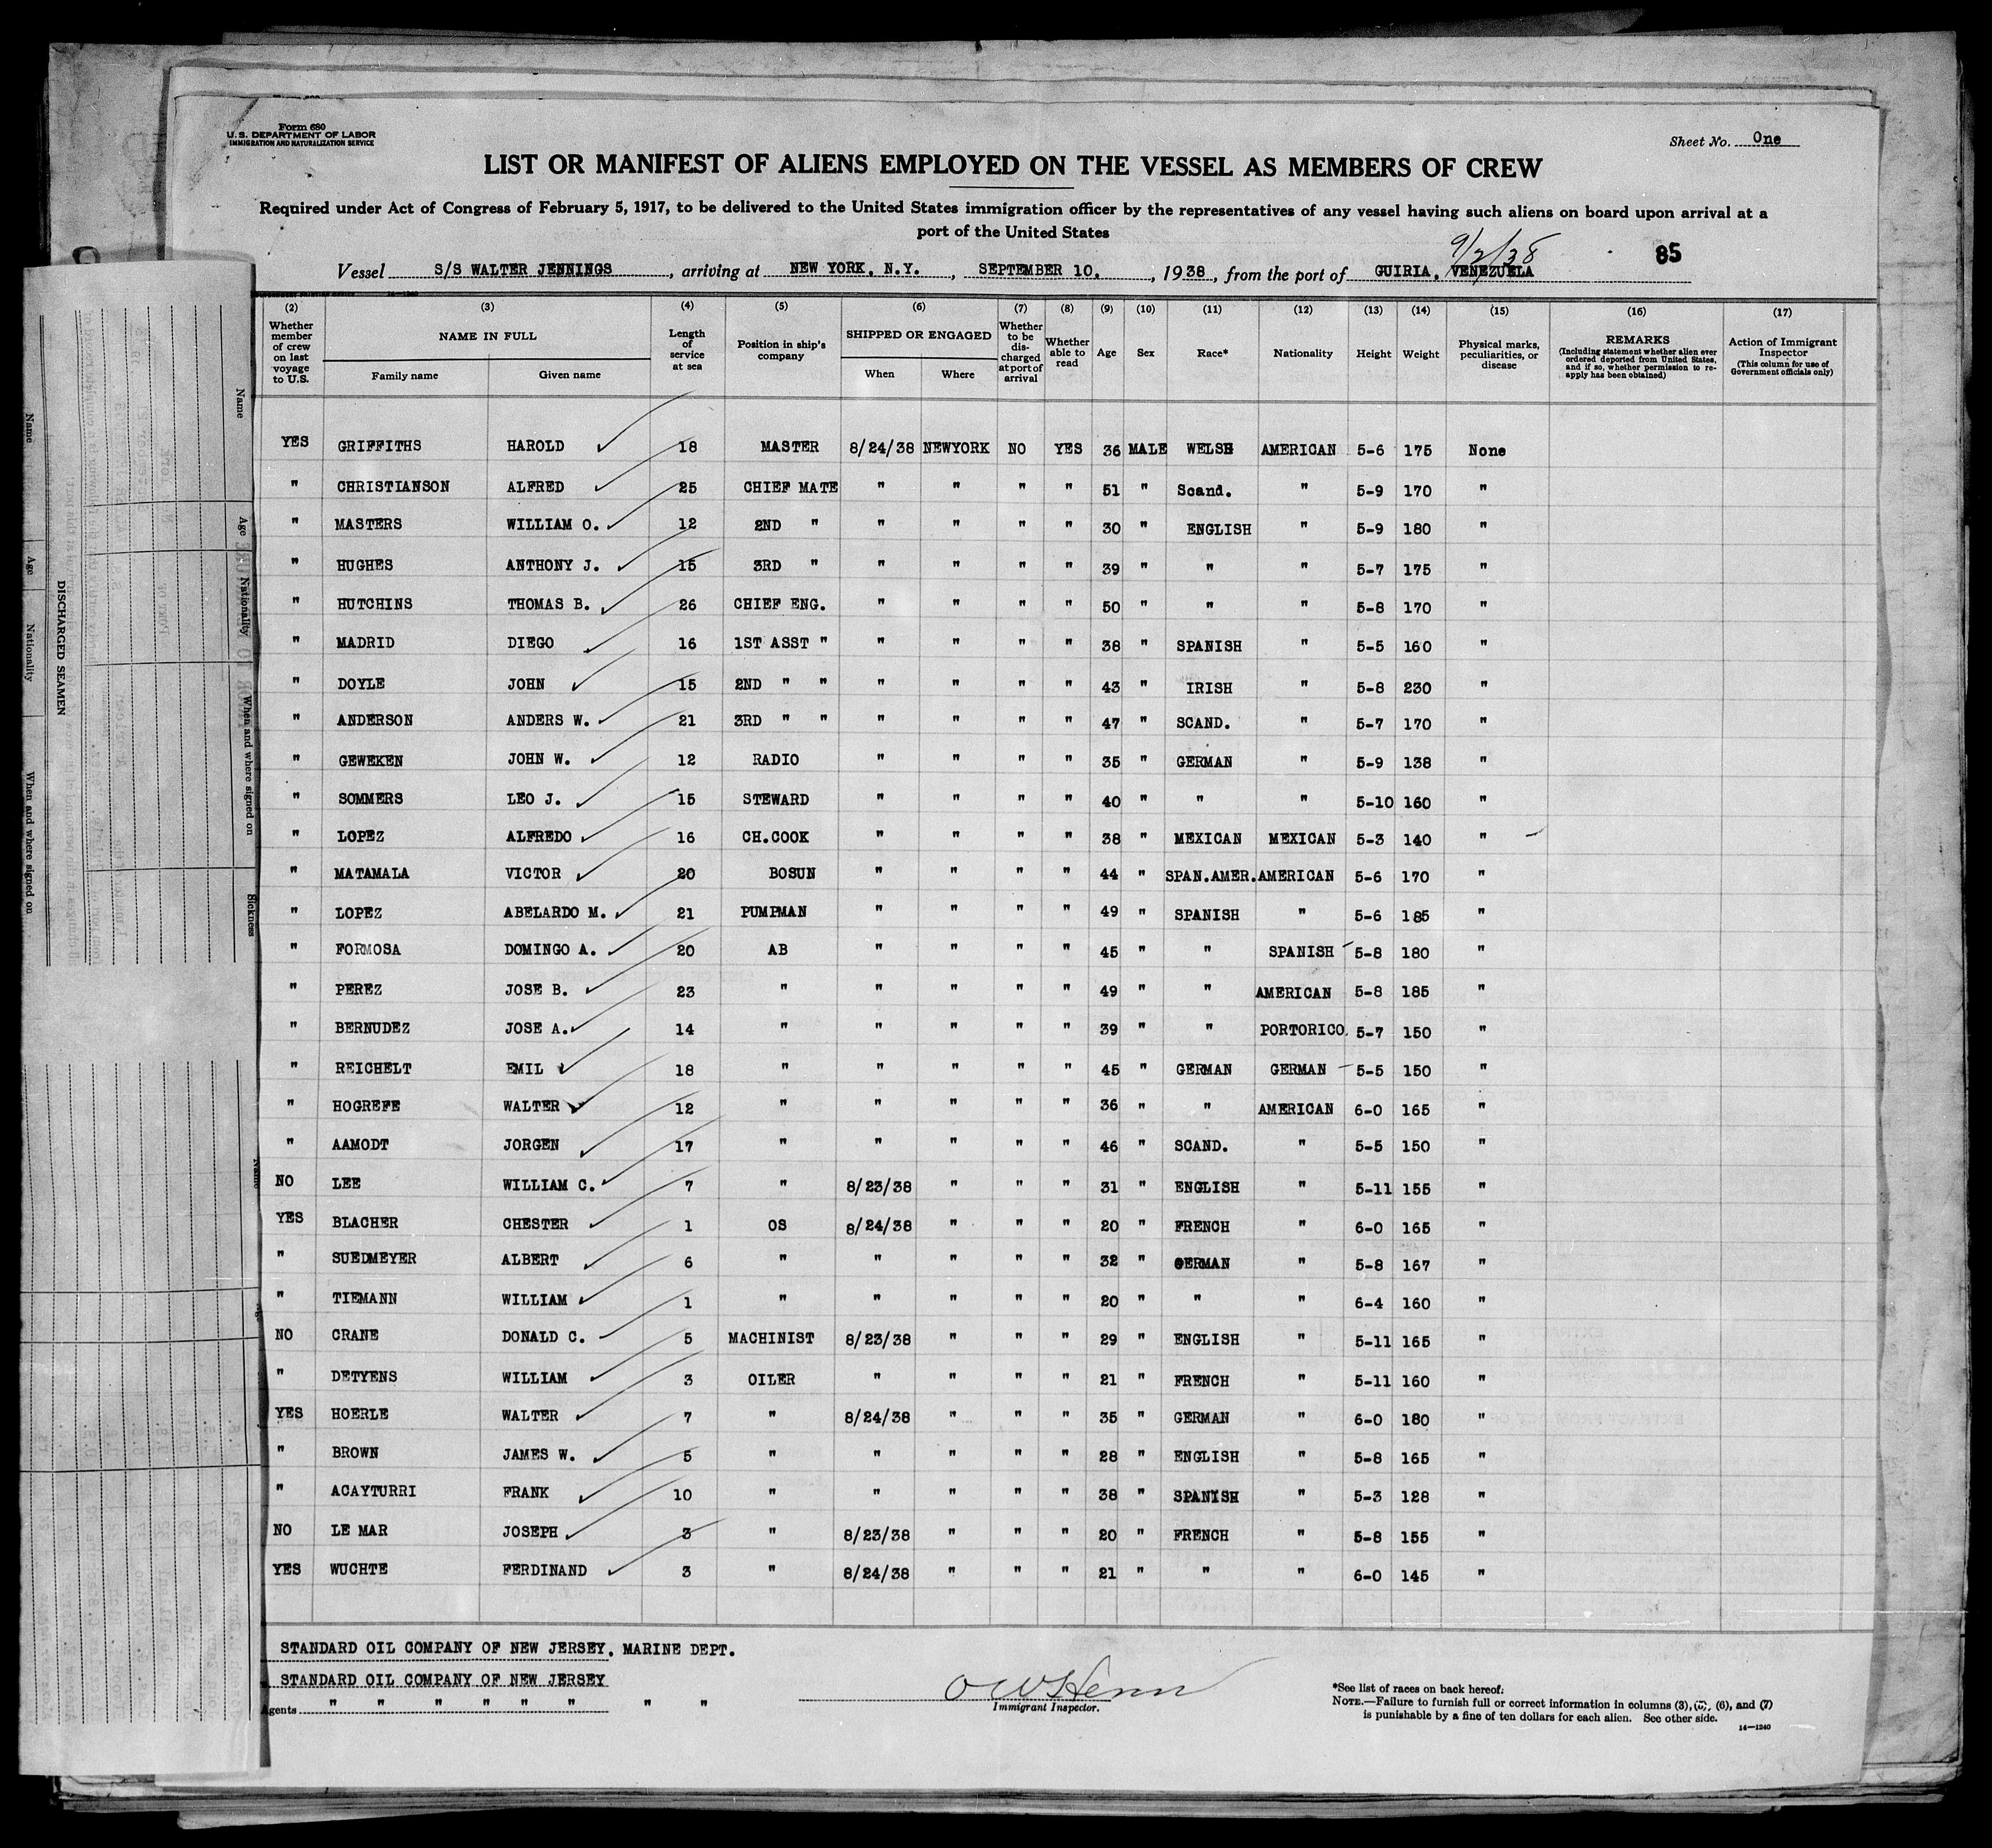 Form 680
U. S. DEPARTMENT OF LABOR
IMMIGRATION AND NATURALIZATION SERVICE
Sheet No. One
LIST OR MANIFEST OF ALIENS EMPLOYED ON THE VESSEL AS MEMBERS OF CREW
Required under Act of Congress of February 5, 1917, to be delivered to the United States immigration officer by the representatives of any vessel having such aliens on board upon arrival at a
port of the United States
9/2/38
85
Vessel S/S WALTER JENNINGS, arriving at NEW YORK, N.Y., SEPTEMBER 10, 1938, from the port of GUIRIA, VENEZUELA
(2) (3) (4) (5) (6) (7) (8) (9) (10) (11) (12) (13) (14) (15) (16) (17)
Whether member of crew on last voyage to U.S. NAME IN FULL Family name Given name Length of service at sea Position in ship's company SHIPPED OR ENGAGED When Where Whether to be discharged at port of arrival Whether able to read Age Sex Race* Nationality Height Weight Physical marks, peculiarities, or disease REMARKS (Including statement whether alien ever ordered deported from United States, and if so, whether permission to reapply has been obtained) Action of Immigrant Inspector (This column for use of Government officials only)
YES GRIFFITHS HAROLD 18 MASTER 8/24/38 NEWYORK NO YES 36 MALE WELSH AMERICAN 5-6 175 None
" CHRISTIANSON ALFRED 25 CHIEF MATE " " " " 51 " Scand. " 5-9 170 "
" MASTERS WILLIAM O. 12 2ND " " " " " 30 " ENGLISH " 5-9 180 "
" HUGHES ANTHONY J. 15 3RD " " " " " 39 " " " 5-7 175 "
" HUTCHINS THOMAS B. 26 CHIEF ENG. " " " " 50 " " " 5-8 170 "
" MADRID DIEGO 16 1ST ASST " " " " " 38 " SPANISH " 5-5 160 "
" DOYLE JOHN 15 2ND " " " " " " 43 " IRISH " 5-8 230 "
" ANDERSON ANDERS W. 21 3RD " " " " " " 47 " SCAND. " 5-7 170 "
" GEWEKEN JOHN W. 12 RADIO " " " " 35 " GERMAN " 5-9 138 "
" SOMMERS LEO J. 15 STEWARD " " " " 40 " " " 5-10 160 "
" LOPEZ ALFREDO 16 CH.COOK " " " " 38 " MEXICAN MEXICAN 5-3 140 "
" MATAMALA VICTOR 20 BOSUN " " " " 44 " SPAN.AMER. AMERICAN 5-6 170 "
" LOPEZ ABELARDO M. 21 PUMPMAN " " " " 49 " SPANISH " 5-6 185 "
" FORMOSA DOMINGO A. 20 AB " " " " 45 " " SPANISH 5-8 180 "
" PEREZ JOSE B. 23 " " " " " 49 " " AMERICAN 5-8 185 "
" BERNUDEZ JOSE A. 14 " " " " " 39 " " PORTORICO. 5-7 150 "
" REICHELT EMIL 18 " " " " " 45 " GERMAN GERMAN 5-5 150 "
" HOGREFE WALTER 12 " " " " " 36 " " AMERICAN 6-0 165 "
" AAMODT JORGEN 17 " " " " " 46 " SCAND. " 5-5 150 "
NO LEE WILLIAM C. 7 " 8/23/38 " " " 31 " ENGLISH " 5-11 155 "
YES BLACHER CHESTER 1 OS 8/24/38 " " " 20 " FRENCH " 6-0 165 "
" SUEDMEYER ALBERT 6 " " " " " 32 " GERMAN " 5-8 167 "
" TIEMANN WILLIAM 1 " " " " " 20 " " " 6-4 160 "
NO CRANE DONALD C. 5 MACHINIST 8/23/38 " " " 29 " ENGLISH " 5-11 165 "
" DETYENS WILLIAM 3 OILER " " " " 21 " FRENCH " 5-11 160 "
YES HOERLE WALTER 7 " 8/24/38 " " " 35 " GERMAN " 6-0 180 "
" BROWN JAMES W. 5 " " " " " 28 " ENGLISH " 5-8 165 "
" ACAYTURRI FRANK 10 " " " " " 38 " SPANISH " 5-3 128 "
NO LE MAR JOSEPH 3 " 8/23/38 " " " 20 " FRENCH " 5-8 155 "
YES WUCHTE FERDINAND 3 " 8/24/38 " " " 21 " " " 6-0 145 "
STANDARD OIL COMPANY OF NEW JERSEY, MARINE DEPT.
STANDARD OIL COMPANY OF NEW JERSEY
Agents " " " " " " " "
Immigrant Inspector.
*See list of races on back hereof.
NOTE.—Failure to furnish full or correct information in columns (3), (5), (6), and (7)
is punishable by a fine of ten dollars for each alien. See other side.
14—1240
Name Age Nationality When and where signed on
DISCHARGED SEAMEN
Name Age Nationality When and where signed on Sickness